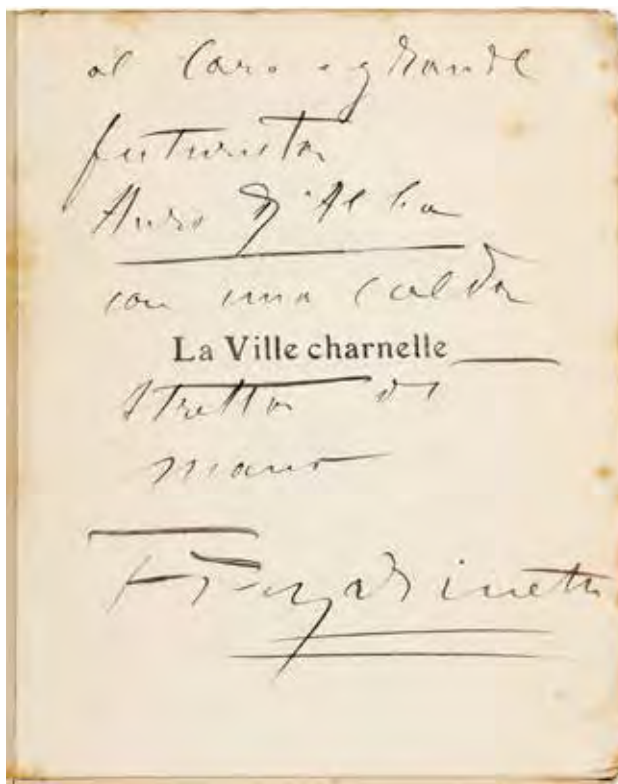 al caro e grande
futurista
Auro D'Alba
con una calda
La Ville charnelle
stretta di
mano
F. T. Marinetti